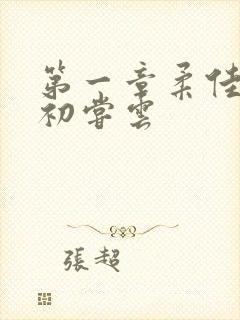 第一章柔佳
初嘗雲
張超